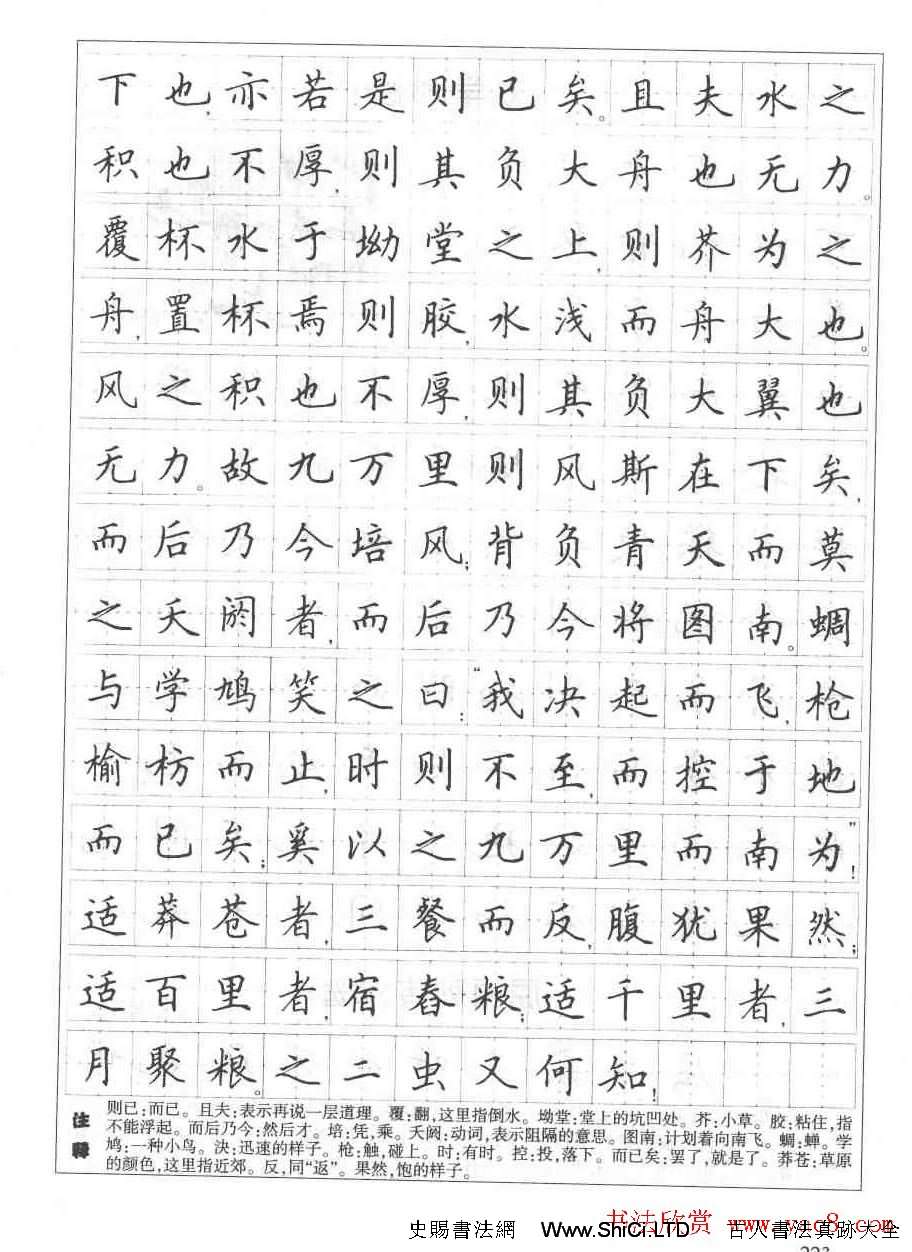 下也,亦若是则已矣。且夫水之
积也不厚,则其负大舟也无力。
覆杯水于坳堂之上,则芥为之
舟,置杯焉则胶,水浅而舟大也。
风之积也不厚,则其负大翼也
无力。故九万里则风斯在下矣,
而后乃今培风;背负青天而莫
之夭阏者,而后乃今将图南。蜩
与学鸠笑之曰:“我决起而飞,枪
榆枋而止,时则不至,而控于地
而已矣;奚以之九万里而南为”!
适莽苍者,三餐而反,腹犹果然;
适百里者,宿舂粮;适千里者,三
月聚粮。之二虫又何知!
注释
则已:而已。且夫:表示再说一层道理。覆:翻,这里指倒水。坳堂:堂上的坑凹处。芥:小草。胶:粘住,指
不能浮起。而后乃今:然后才。培:凭,乘。夭阏:动词,表示阻隔的意思。图南:计划着向南飞。蜩:蝉。学
鸠:一种小鸟。決:迅速的样子。枪:触,碰上。时:有时。控:投,落下。而已矣:罢了,就是了。莽苍:草原
的颜色,这里指近郊。反,同“返”。果然,饱的样子。
书法欣赏 www.yac8.com
史賜書法網 Www.ShiCi.LTD 古人書法真跡大全